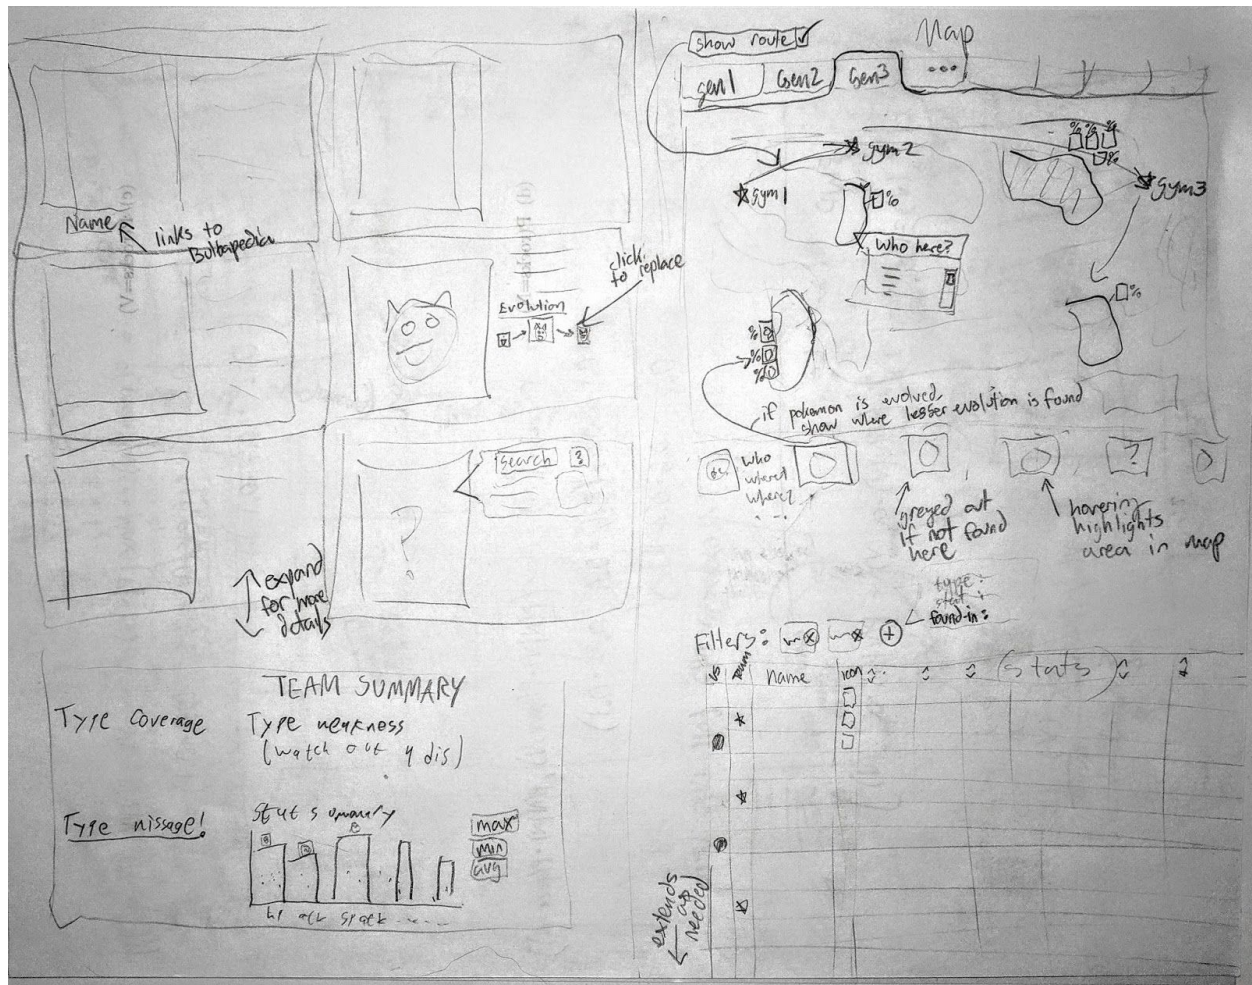 Name
links to
Bulbapedia
Evolution
click
to replace
Search
?
?
expand
for more
details
TEAM SUMMARY
Type Coverage
Type weakness
(watch out 4 dis)
Type missage!
Stat summary
max
min
avg
hp atk spatk
Map
show route
gen1
Gen2
Gen3
...
gym1
gym2
gym3
% % %
%
%
Who here?
%
%
%
%
if pokemon is evolved,
show where lesser evolution is found
who
where?
where?
?
greyed out
if not found
here
hovering
highlights
area in map
type:
stat:
found-in:
Filters:
x
x
+
VS
Team
name
icon
(stats)
extends
as
needed